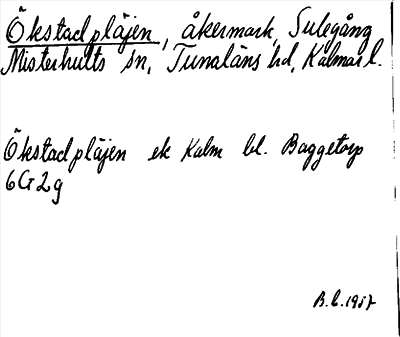 Ökstadpläjen, åkermark, Sulegång
Misterhults sn, Tunaläns hd, Kalmar l.
Ökstadpläjen ek Kalm bl. Baggetorp
6G2g
B.L. 1957